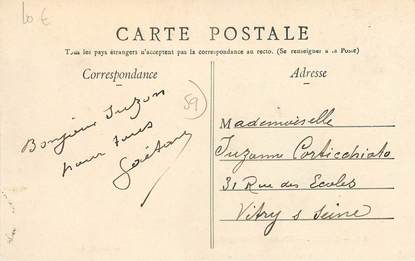 10 €
CARTE POSTALE
Tous les pays étrangers n'acceptent pas la correspondance au recto. (Se renseigner à la Poste)
Correspondance
Adresse
59
Bonjour Suzon
pour tous
Gaëtan
Mademoiselle
Suzanne Corticchiato
31 Rue des Ecoles
Vitry s Seine